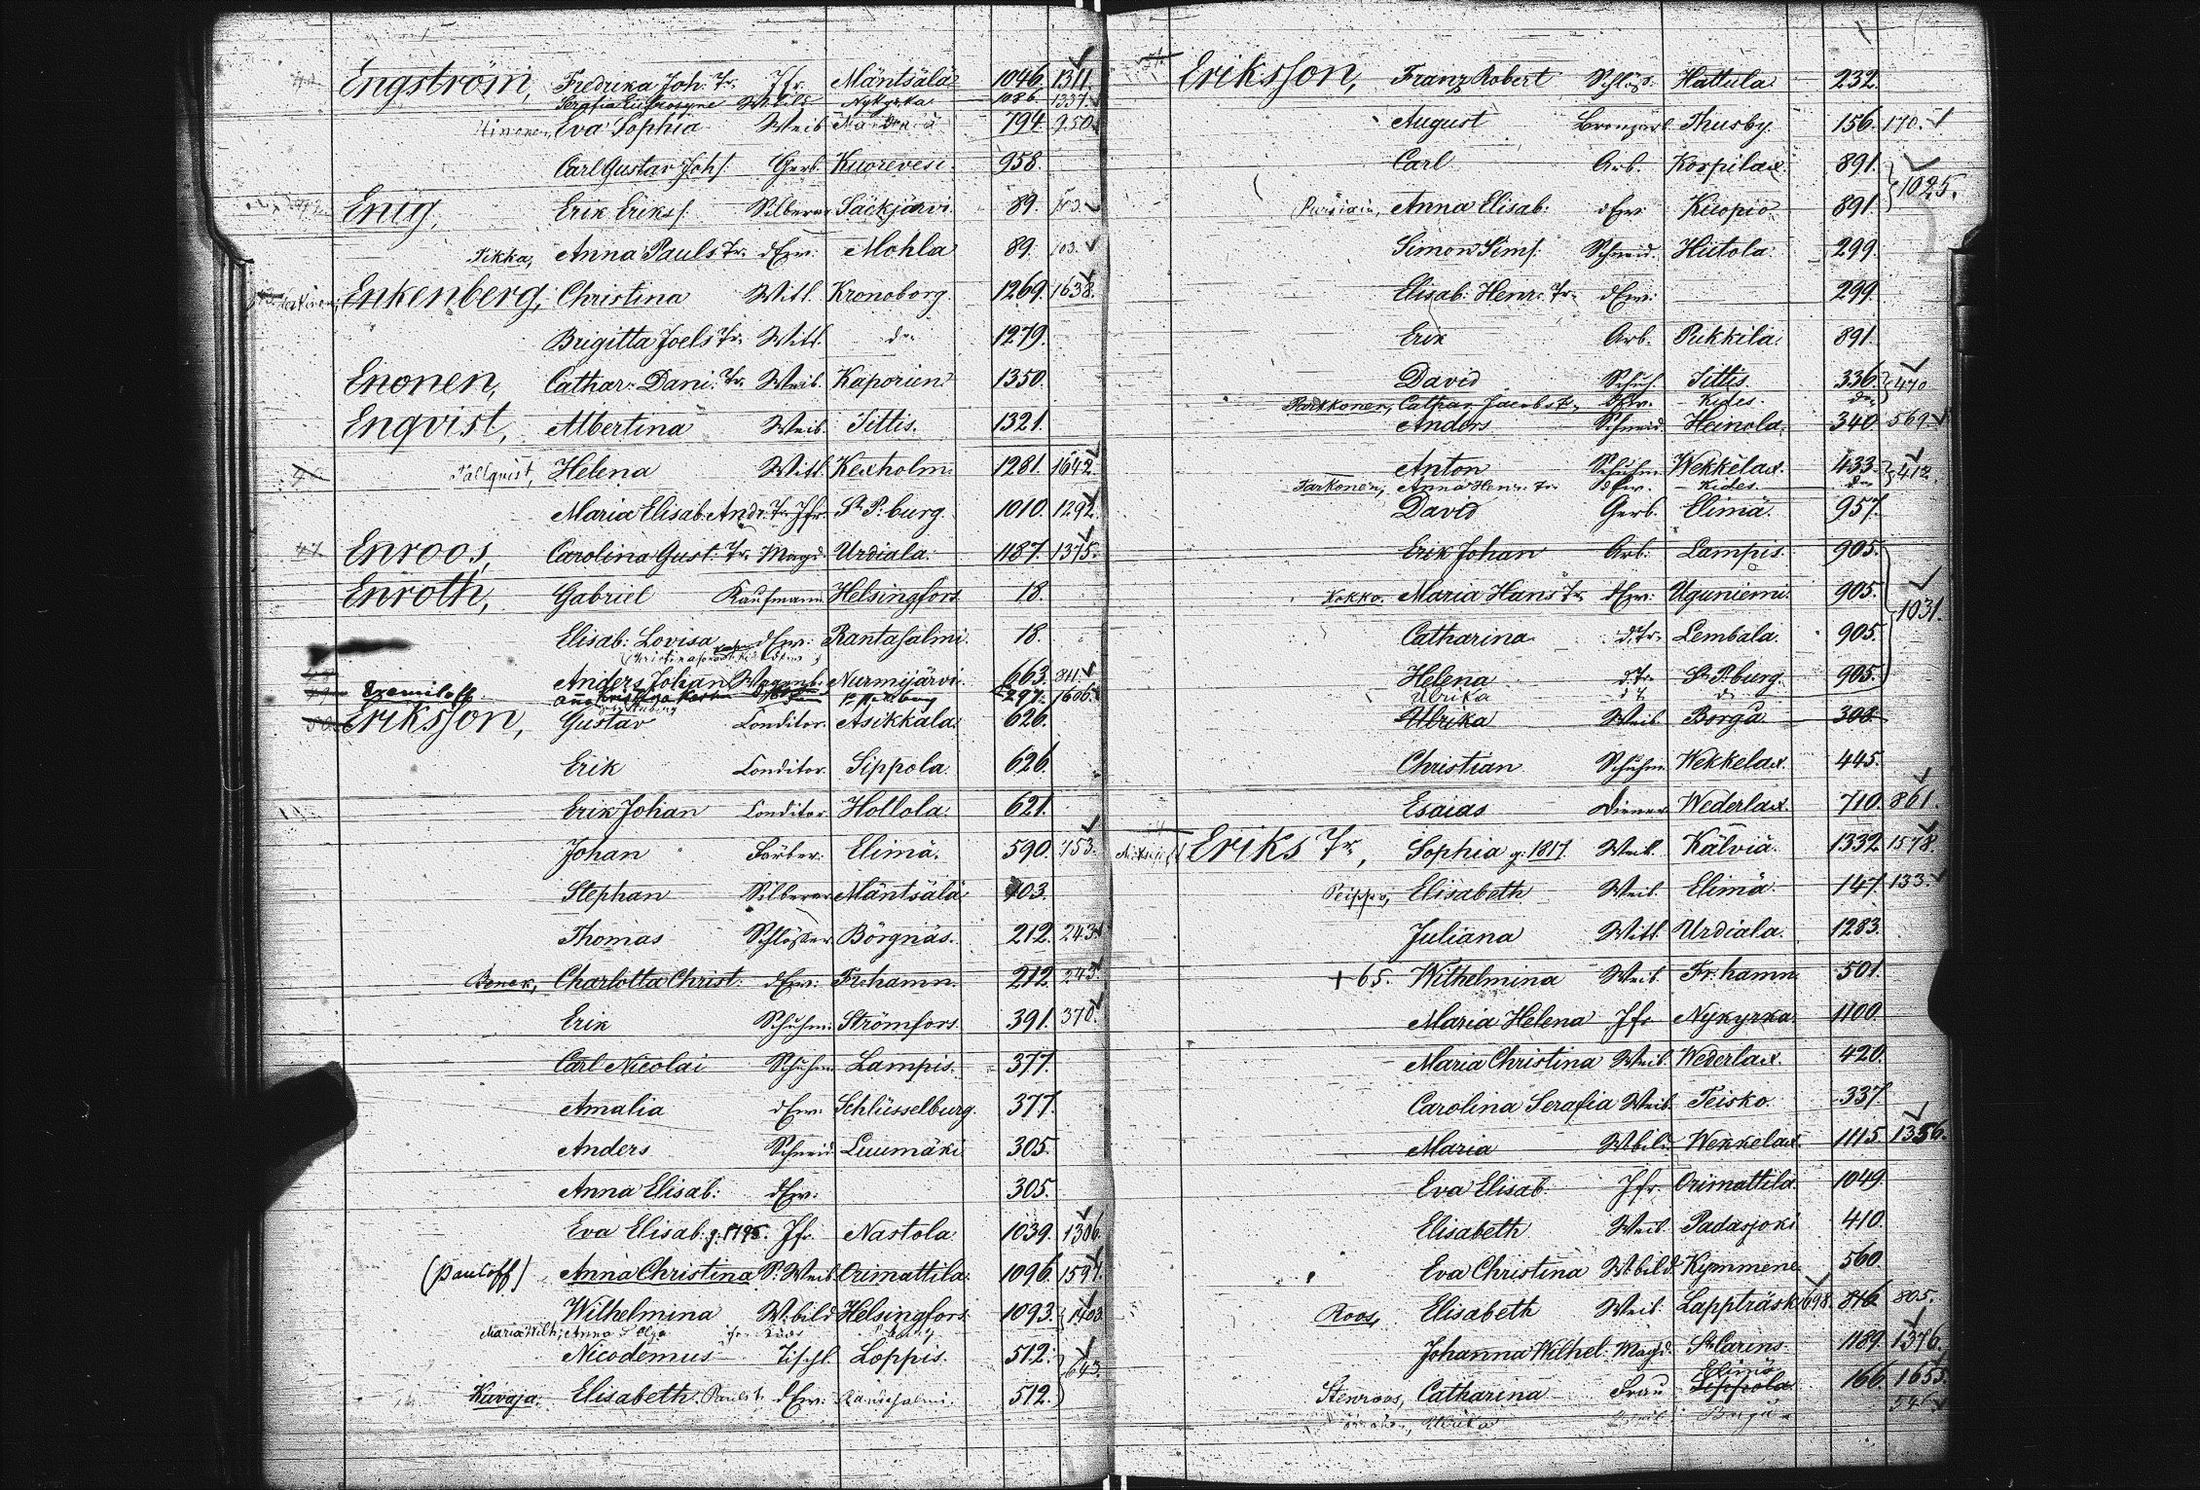 Engström, Fredrika Joh. Tr. Jfr. Mäntsälä 1046. 1311.
Serafia Eufrosyne Wbild Nykyrka 1086. 1337.
Eva Sophia Weib 794. 950.
Carl Gustav Joh/. Gerb. Kuorevesi 958.
Enig, Erik Eriks/. Silberar Säckjärvi 89. 103.
Pikka, Anna Pauls Tr. d Erv. Mohla 89. 103.
Enkenberg, Christina Witt. Kronoborg 1269. 1638.
Brigitta Joels Tr. Witt. do 1279.
Enonen, Cathar. Dani. Tr. Weib. Kaporien 1350.
Enqvist, Albertina Weib. Sittis. 1321.
Tallqvist, Helena Witt. Kexholm 1281. 1642.
Maria Elisab. Andr. Tr. Jfr. St. P. burg. 1010. 1292.
47 Enroos, Carolina Gust. Tr. Magd. Urdiala. 1187. 1375.
Enroth, Gabriel Kaufmann Helsingfors 18.
Elisab: Lovisa d Erv: Rantasalmi 18.
Anders Johan Nurmijärvi. 663. 841.
297. 1606.
Eriksson, Gustav Conditor. Asikkala 626.
Erik Conditor. Sippola. 626.
Erik Johan Conditor. Hollola. 621.
Johan Färber. Elimä. 590. 753.
Stephan Silberar Mäntsälä 403.
Thomas Schlösser Börgnäs. 212. 243.
Charlotta Christ. d Erv: Fr. hamn. 212. 243.
Erik Schuhm. Strömfors. 391. 370.
Carl Nicolai Schuhm. Lampis. 377.
Amalia d Erv. Schlüsselburg. 377.
Anders Schneid. Luumäki 305.
Anna Elisab: d Erv. 305.
Eva Elisab. g. 1795. Jfr. Nastola 1039. 1306.
(Pauloff) Anna Christina S. Weib Orimattila. 1096. 1597.
Wilhelmina Wbild Helsingfors 1093. 1403.
Maria Wilh; Anna Olga
Nicodemus Tischl. Loppis. 512. 643.
Kuvaja. Elisabeth Paulst. d Erv. Randasalmi. 512.
Eriksson, Franz Robert Schlöss. Hattula 232.
August Thusby. 156. 170.
Carl Arb. Korpilax. 891. 1025.
Anna Elisab: d Erv. Kuopio 891.
Simon Sims/. Schneid. Hiitola. 299.
Elisab: Henr. Tr. d Erv. 299.
Erik Arb. Pukkila 891.
David Schuh. Sittis. 336. 470
Cathar. Jacobs Tr. d Erv. Kides. do
Anders Schneid. Heinola. 340 569.
Anton Schuhm. Wekkelax. 433. 412.
Tarkonen, Anna Henr. Tr. d Erv. Kides. do
David Gerb. Elimä. 957.
Erik Johan Arb. Lampis. 905.
Kokko. Maria Hans Tr. d Erv. Uguniemi 905. 1031.
Catharina d. Tr. Lembala. 905.
Helena d. Tr. St. P. burg. 905.
Ulrika d. T. d
Ulrika Weib Borgå 308.
Christian Schuhm. Wekkelax. 445.
Esaias Diener Wederlax. 710. 861.
Eriks Tr., Sophia g. 1817. Weib. Kälviä. 1332. 1578.
Peippo, Elisabeth Weib. Elimä. 147. 133.
Juliana Witt. Urdiala. 1283.
+ 65. Wilhelmina Weib. Fr. hamn. 501.
Maria Helena Jfr Nykyrka. 1100.
Maria Christina Weib. Wederlax. 420.
Carolina Serafia Weib. Teisko. 337.
Maria Wbild. Wekkelax. 1115. 1356.
Eva Elisab. Jfr. Orimattila. 1049.
Elisabeth Weib. Padasjoki 410.
Eva Christina Wbild. Kymmene 560.
Roos, Elisabeth Weib. Lappträsk 698. 816 805.
Johanna Wilhel. Magd. St. Carins. 1189. 1376.
Elimä
Stenroos, Catharina Frau Sippola. 166. 1653.
Ulrika Borgå 546